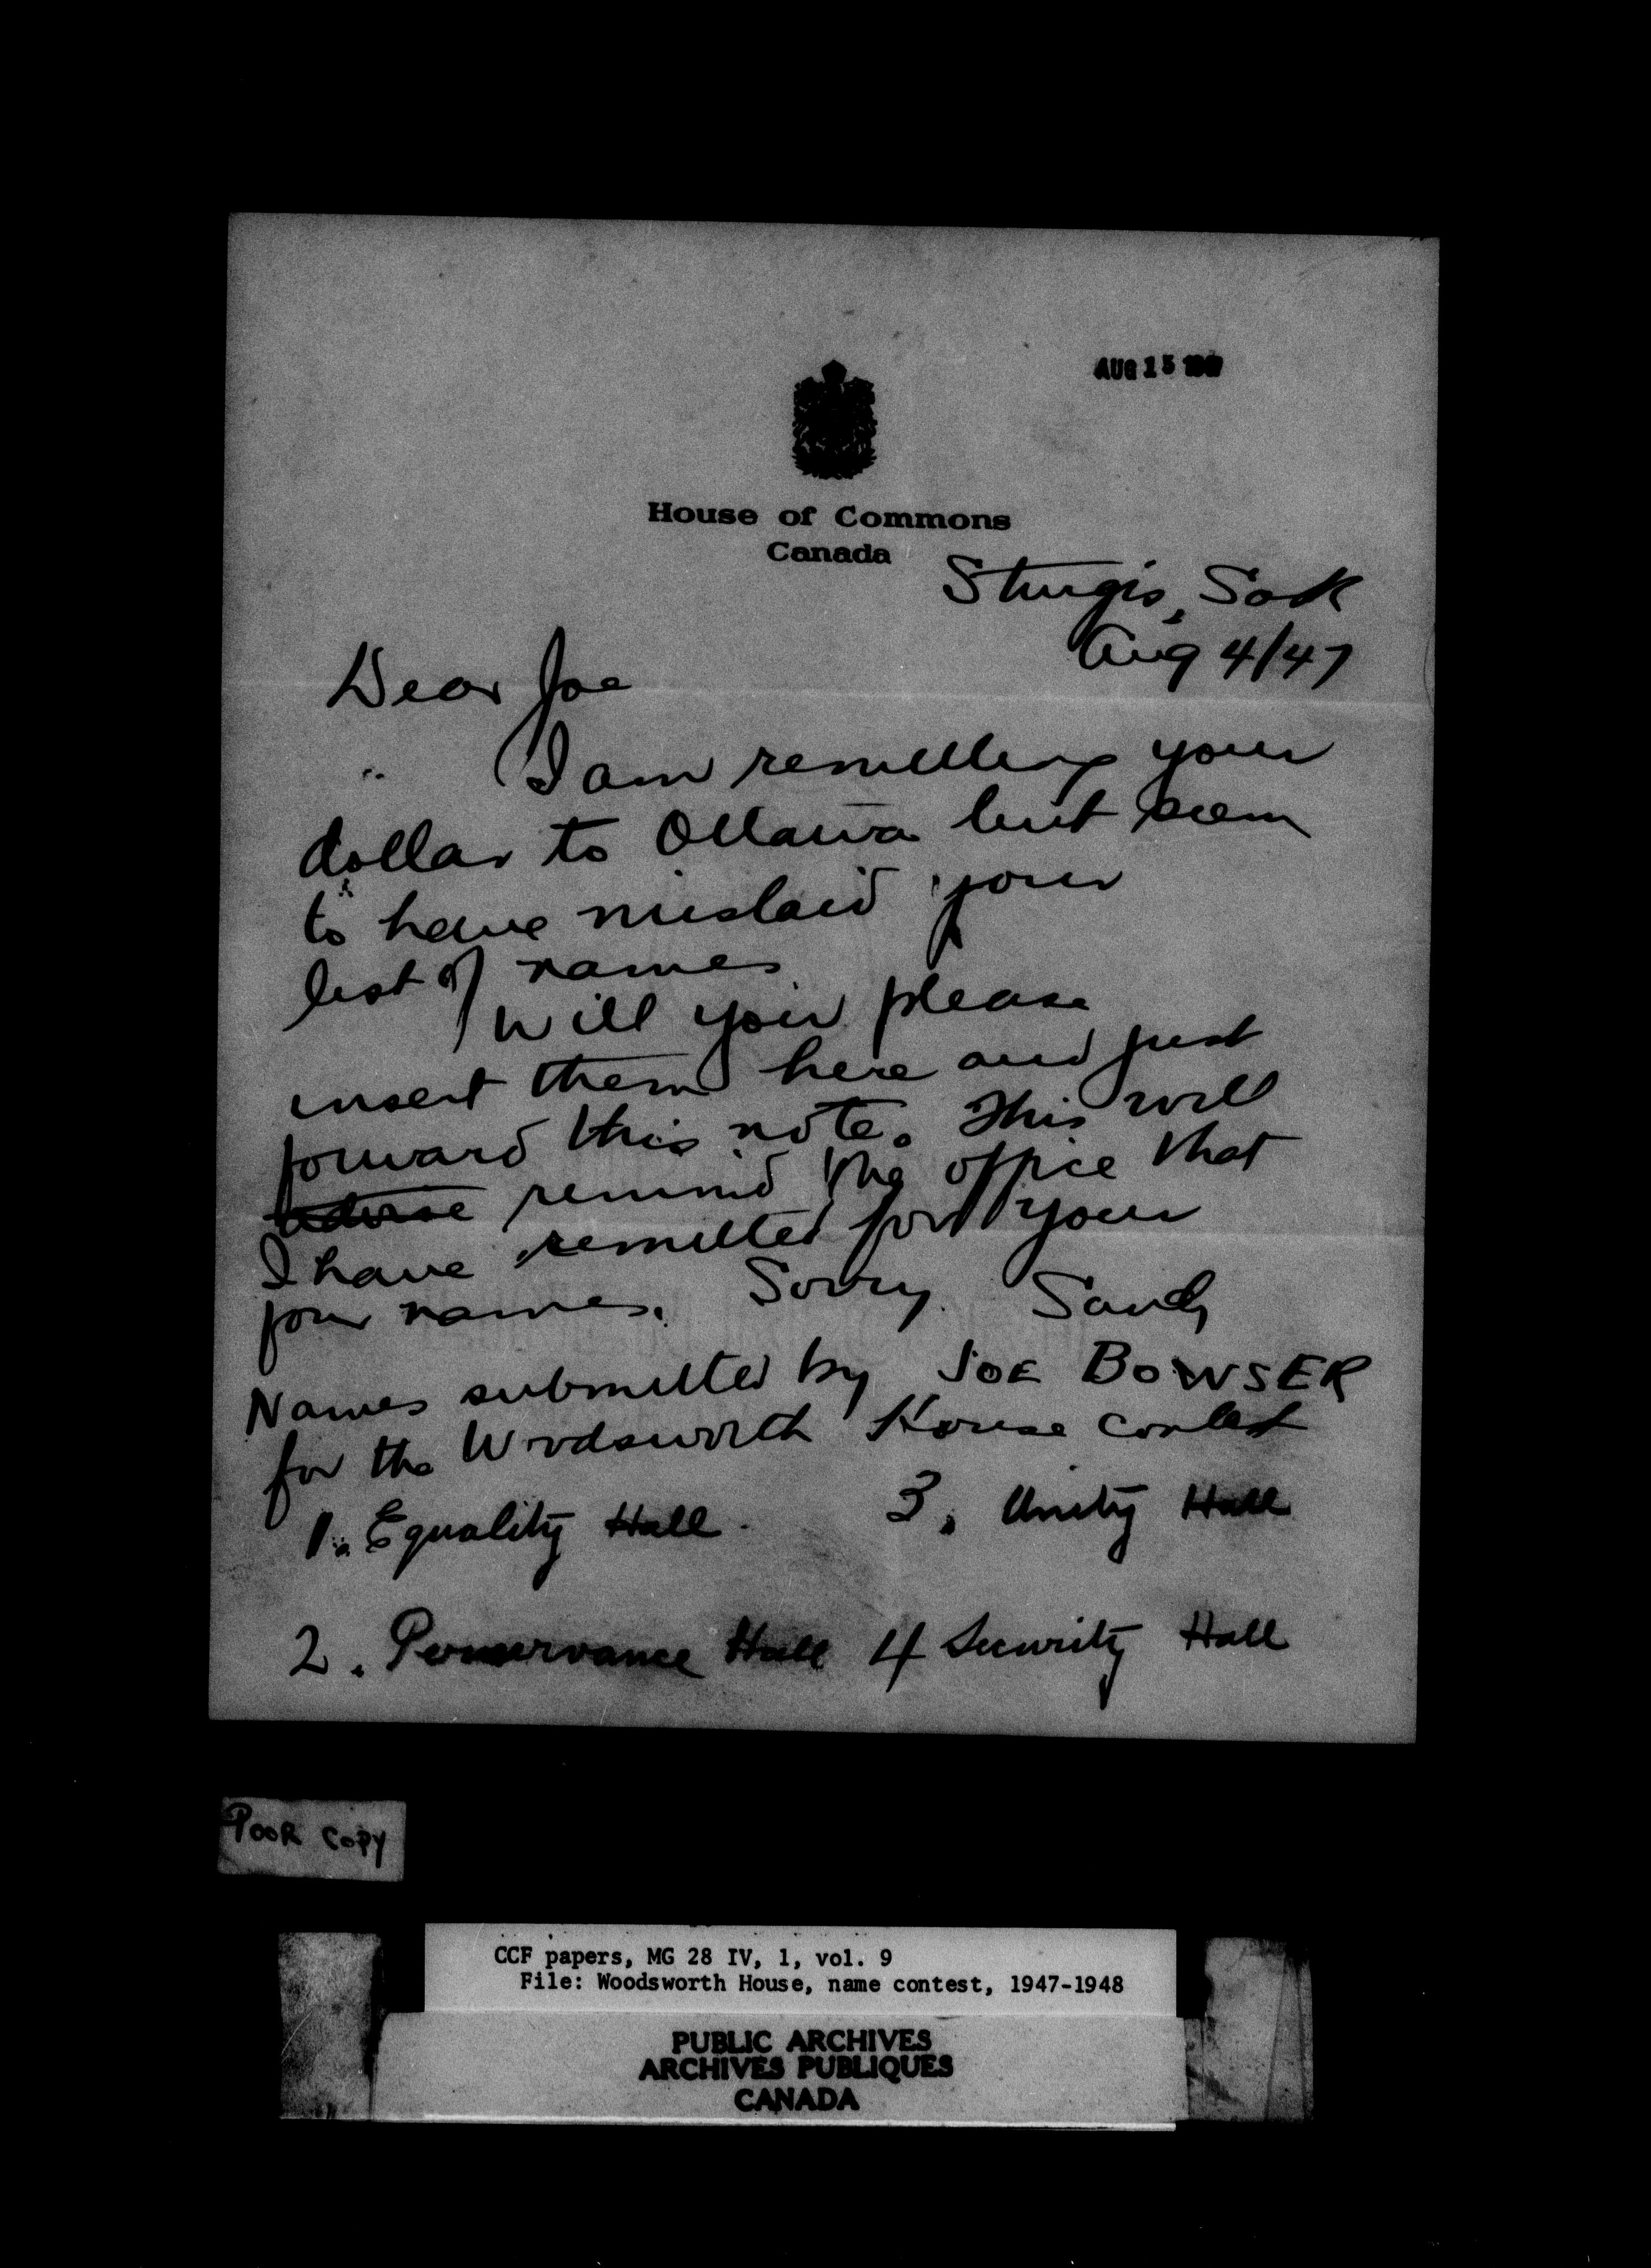 AUG 15 1947
House of Commons
Canada
Sturgis, Sask
Aug 4/47
Dear Joe
I am remitting your
dollar to Ottawa but seem
to have mislaid your
list of names
Will you please
insert them here and just
forward this note. This will
remind the office that
I have remitted for your
four names. Sorry. Sandy
Names submitted by JOE BOWSER
for the Wodsworth House contest
1. Equality Hall
3. Unity Hall
2. Perservance Hall
4 Security Hall
POOR COPY
CCF papers, MG 28 IV, 1, vol. 9
File: Woodsworth House, name contest, 1947-1948
PUBLIC ARCHIVES
ARCHIVES PUBLIQUES
CANADA